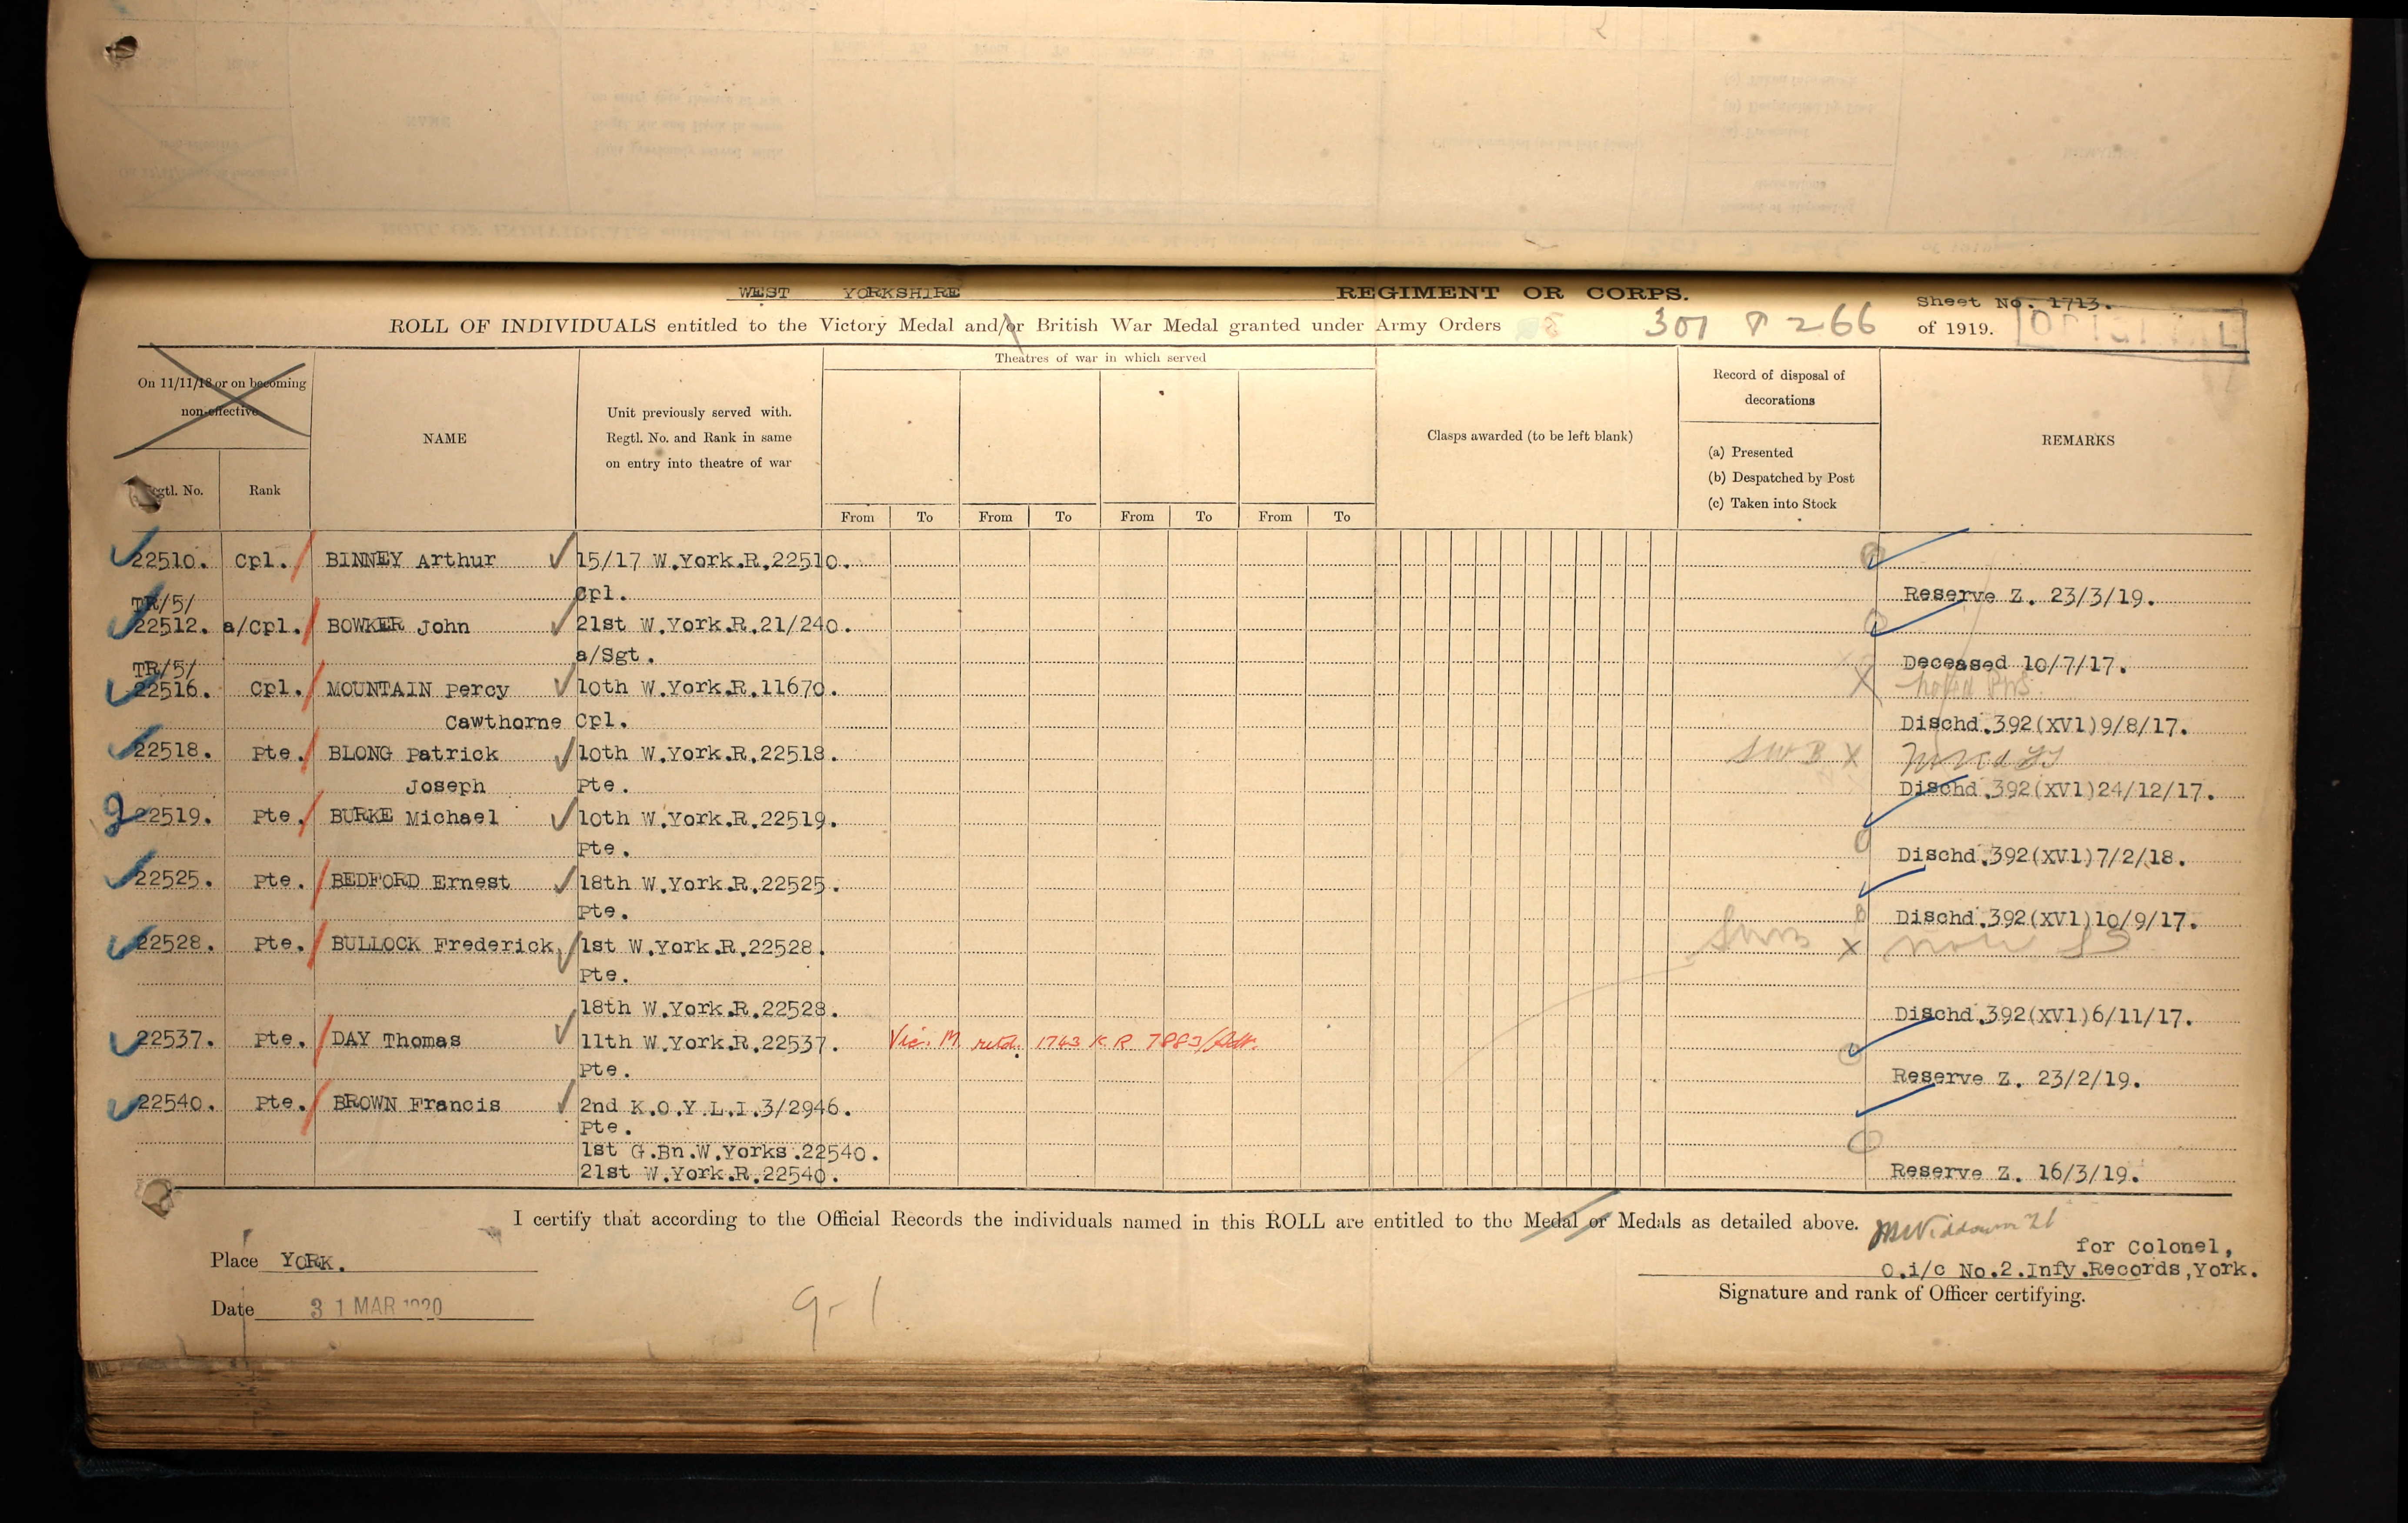 WEST YORKSHIRE REGIMENT OR CORPS.
Sheet No. 1713.
ROLL OF INDIVIDUALS entitled to the Victory Medal and/or British War Medal granted under Army Orders 301 & 266 of 1919.
On 11/11/18 or on becoming
non-effective
Regtl. No. Rank
NAME
Unit previously served with.
Regtl. No. and Rank in same
on entry into theatre of war
Theatres of war in which served
From To From To From To From To
Clasps awarded (to be left blank)
Record of disposal of
decorations
(a) Presented
(b) Despatched by Post
(c) Taken into Stock
REMARKS
22510. Cpl. BINNEY Arthur 15/17 W.York.R.22510.
Cpl. Reserve Z. 23/3/19.
TR/5/
22512. a/Cpl. BOWKER John 21st W.York.R.21/240.
a/Sgt. Deceased 10/7/17.
TR/5/
22516. Cpl. MOUNTAIN Percy 10th W.York.R.11670.
Cawthorne Cpl. Dischd.392(XVl)9/8/17.
22518. Pte. BLONG Patrick 10th W.York.R.22518. SWB X
Joseph Pte. Dischd.392(XVl)24/12/17.
22519. Pte. BURKE Michael 10th W.York.R.22519.
Pte. Dischd.392(XVl)7/2/18.
22525. Pte. BEDFORD Ernest 18th W.York.R.22525.
Pte. Dischd.392(XVl)10/9/17.
22528. Pte. BULLOCK Frederick 1st W.York.R.22528. SWB X
Pte.
18th W.York.R.22528. Dischd.392(XVl)6/11/17.
22537. Pte. DAY Thomas 11th W.York.R.22537. Vic. M retd. 1743 K R 7883/Adt.
Pte. Reserve Z. 23/2/19.
22540. Pte. BROWN Francis 2nd K.O.Y.L.I.3/2946.
Pte.
1st G.Bn.W.Yorks.22540.
21st W.York.R.22540. Reserve Z. 16/3/19.
I certify that according to the Official Records the individuals named in this ROLL are entitled to the Medal or Medals as detailed above.
for Colonel,
Place YORK.
O.i/c No.2.Infy.Records,York.
Signature and rank of Officer certifying.
Date 31 MAR 1920
9-1